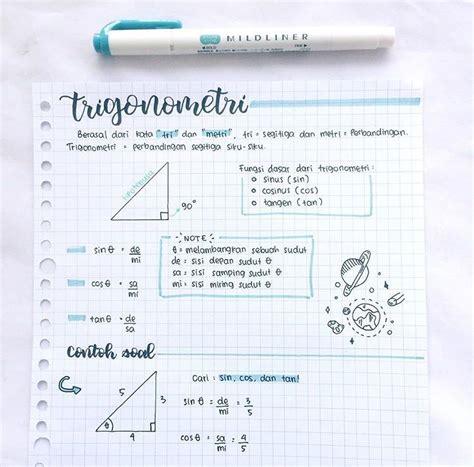 MILDLINER
trigonometri
Berasal dari kata "tri" dan "metri", tri = segitiga dan metri = Perbandingan.
Trigonometri = perbandingan segitiga siku-siku.
hipotenusa
90°
Fungsi dasar dari trigonometri:
sinus (sin)
cosinus (cos)
tangen (tan)
NOTE
θ = melambangkan sebuah sudut
de = sisi depan sudut θ
sa = sisi samping sudut θ
mi = sisi miring sudut θ
sin θ = de/mi
cos θ = sa/mi
tan θ = de/sa
contoh soal
5
3
θ
4
Cari: sin, cos, dan tan!
sin θ = de/mi = 3/5
cos θ = sa/mi = 4/5